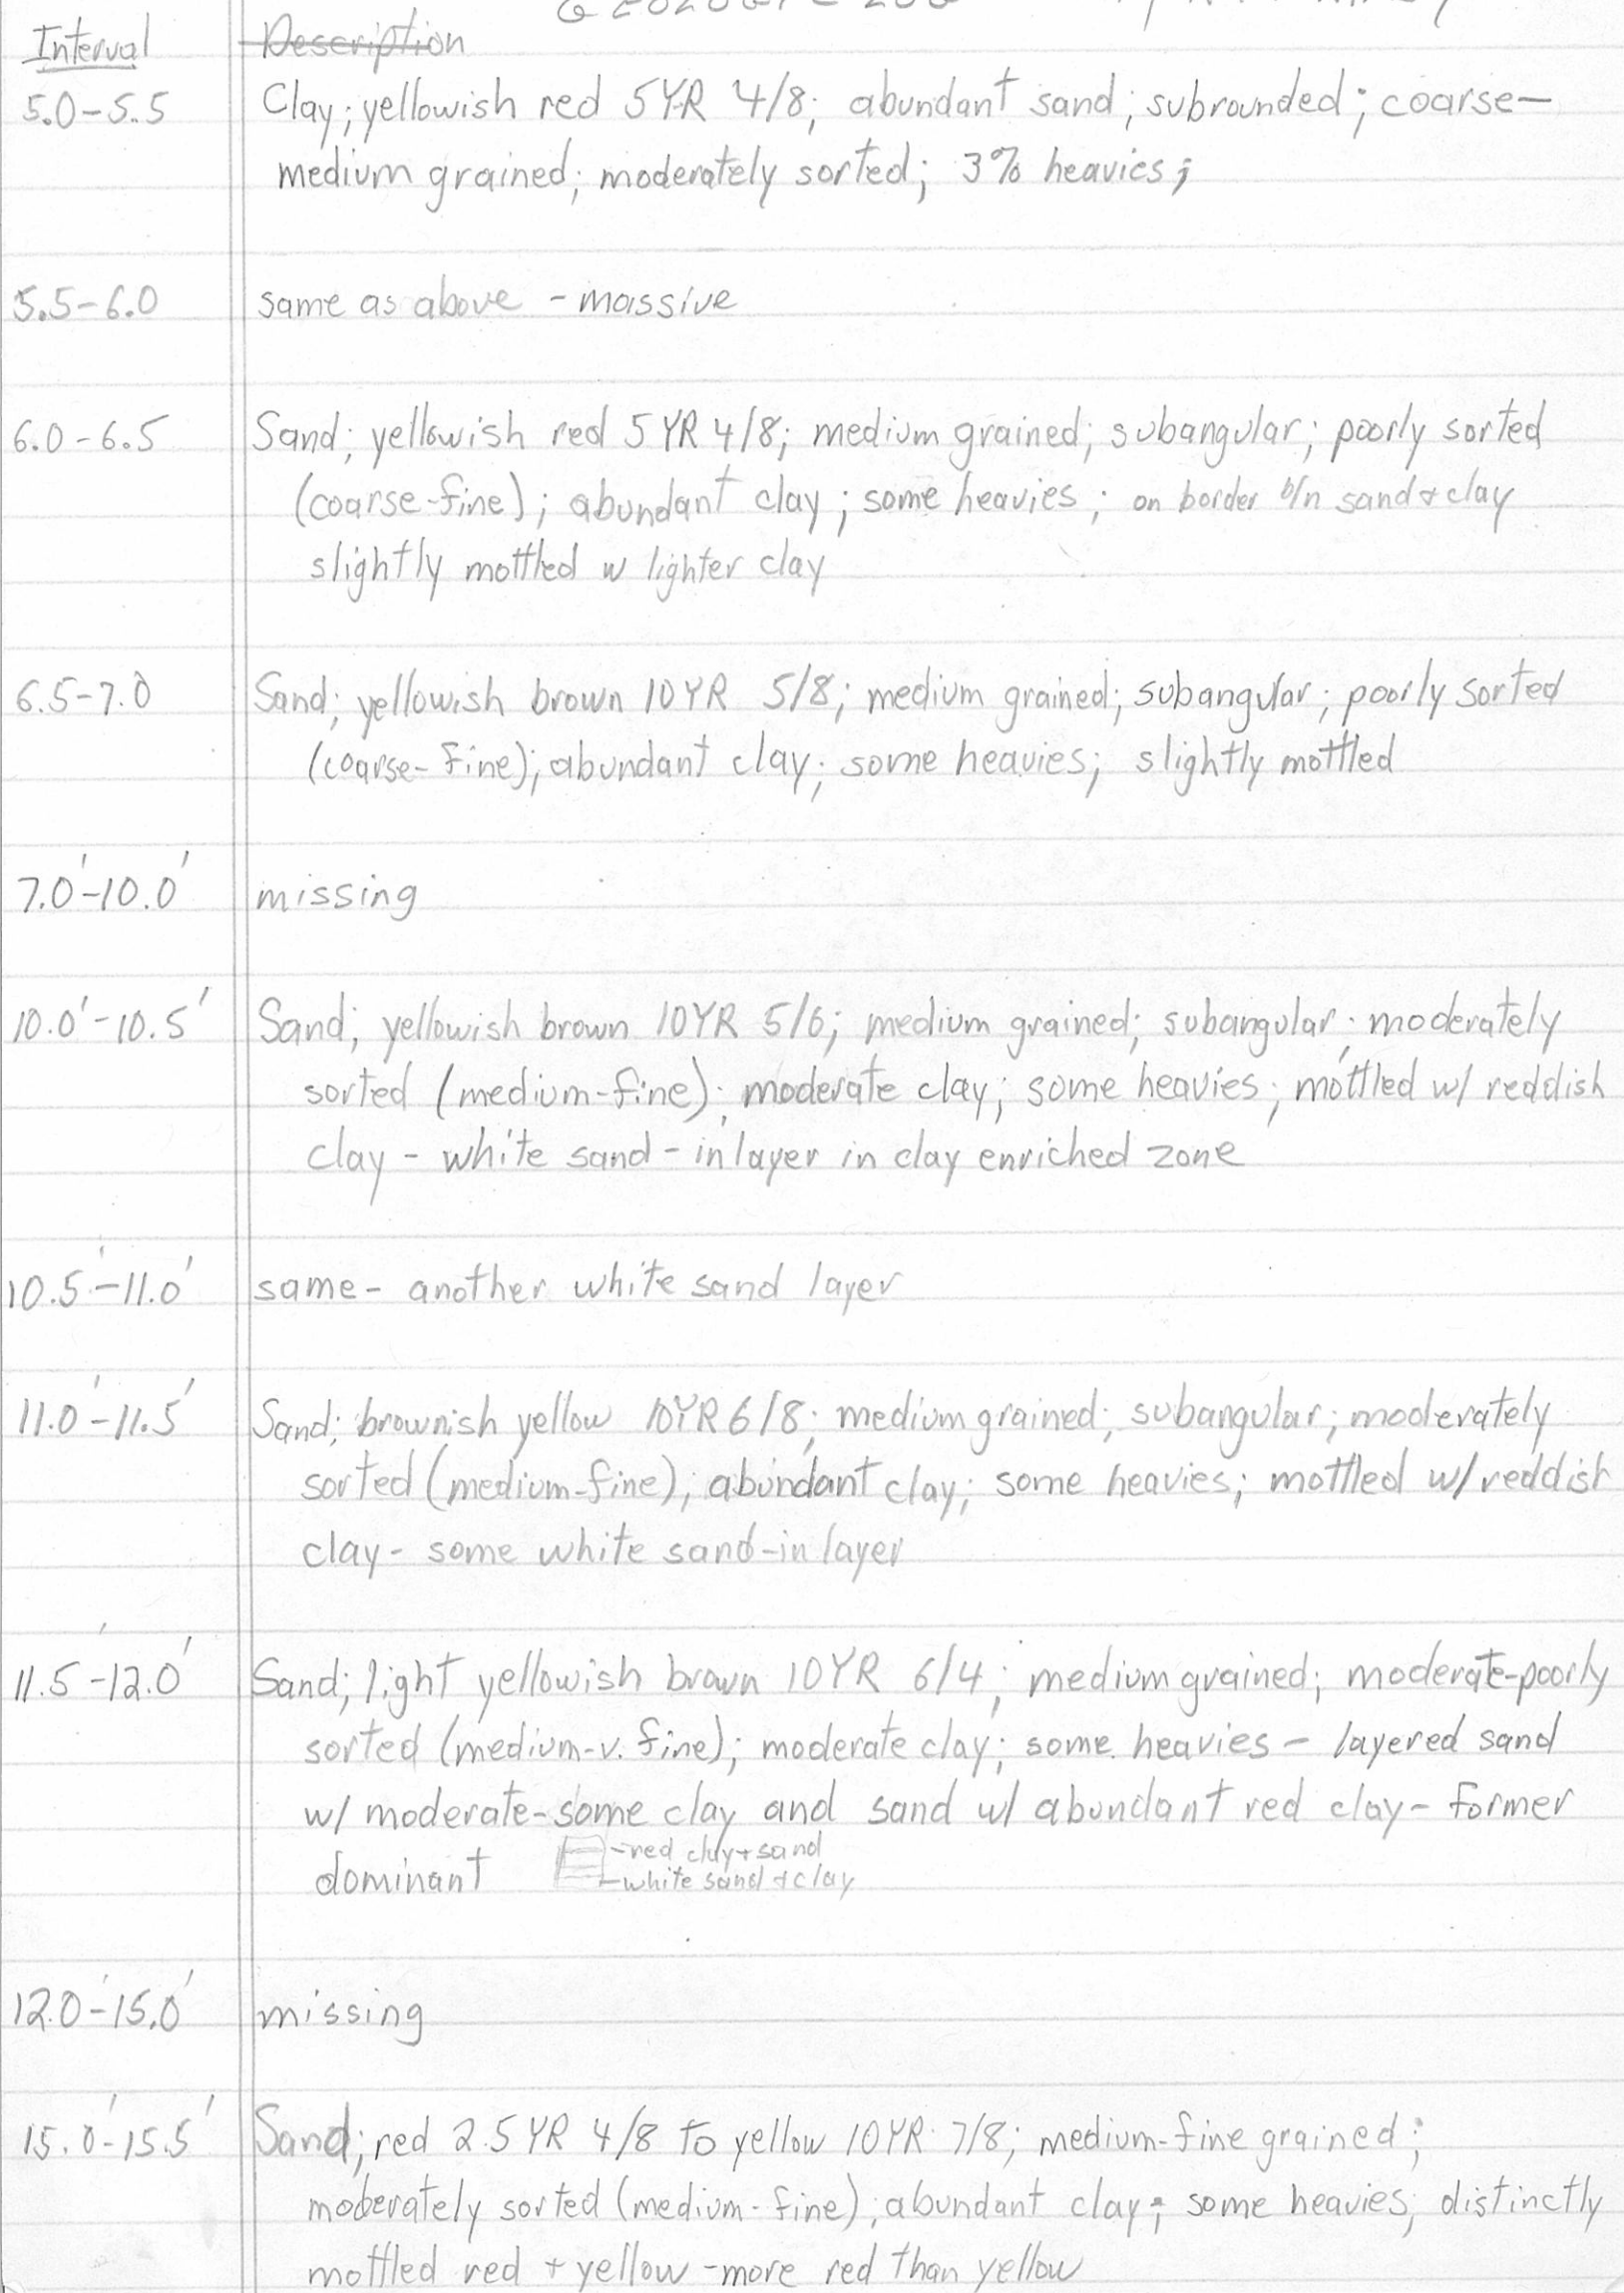 GEOLOGIC LOG
Interval Description
5.0-5.5 Clay; yellowish red 5YR 4/8; abundant sand; subrounded; coarse-
medium grained; moderately sorted; 3% heavies;
5.5-6.0 same as above - massive
6.0-6.5 Sand; yellowish red 5YR 4/8; medium grained; subangular; poorly sorted
(coarse-fine); abundant clay; some heavies; on border b/n sand & clay
slightly mottled w lighter clay
6.5-7.0 Sand; yellowish brown 10YR 5/8; medium grained; subangular; poorly sorted
(coarse-fine); abundant clay; some heavies; slightly mottled
7.0'-10.0' missing
10.0'-10.5' Sand; yellowish brown 10YR 5/6; medium grained; subangular; moderately
sorted (medium-fine); moderate clay; some heavies; mottled w/ reddish
clay - white sand - in layer in clay enriched zone
10.5'-11.0' same - another white sand layer
11.0'-11.5' Sand; brownish yellow 10YR 6/8; medium grained; subangular; moderately
sorted (medium-fine); abundant clay; some heavies; mottled w/ reddish
clay - some white sand-in layer
11.5'-12.0' Sand; light yellowish brown 10YR 6/4; medium grained; moderate-poorly
sorted (medium-v. fine); moderate clay; some heavies - layered sand
w/ moderate-some clay and sand w/ abundant red clay - former
dominant -red clay + sand
-white sand + clay
12.0'-15.0' missing
15.0'-15.5' Sand; red 2.5YR 4/8 to yellow 10YR 7/8; medium-fine grained;
moderately sorted (medium-fine); abundant clay; some heavies; distinctly
mottled red + yellow - more red than yellow